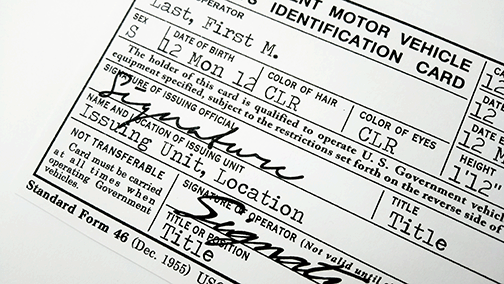 ENT MOTOR VEHICLE
OPERATOR
S IDENTIFICATION CARD
Last, First M.
SEX
DATE OF BIRTH
COLOR OF HAIR
COLOR OF EYES
HEIGHT
S
12 Mon 12
CLR
CLR
1'12
The holder of this card is qualified to operate U. S. Government vehicles
equipment specified, subject to the restrictions set forth on the reverse side of
SIGNATURE OF ISSUING OFFICIAL
Signature
TITLE
Title
NAME AND LOCATION OF ISSUING UNIT
Issuing Unit, Location
NOT TRANSFERABLE
Card must be carried
at all times when
operating Government
vehicles.
SIGNATURE OF OPERATOR (Not valid until
Signat
TITLE OR POSITION
Title
Standard Form 46 (Dec. 1955)